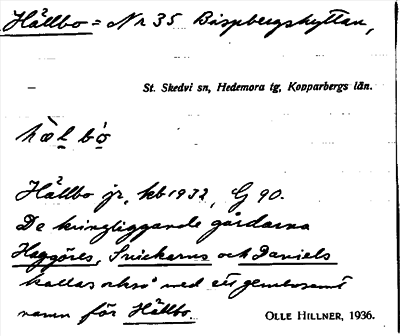 Hällbo = Nr 35 Bispbergshyttan,
– St. Skedvi sn, Hedemora tg, Kopparbergs län.
hæl bo
Hällbo jr, kb 1932, G 90.
De kringliggande gårdarna
Haggöres, Snickarns och Daniels
kallas också med ett gemensamt
namn för Hällbo.
OLLE HILLNER, 1936.